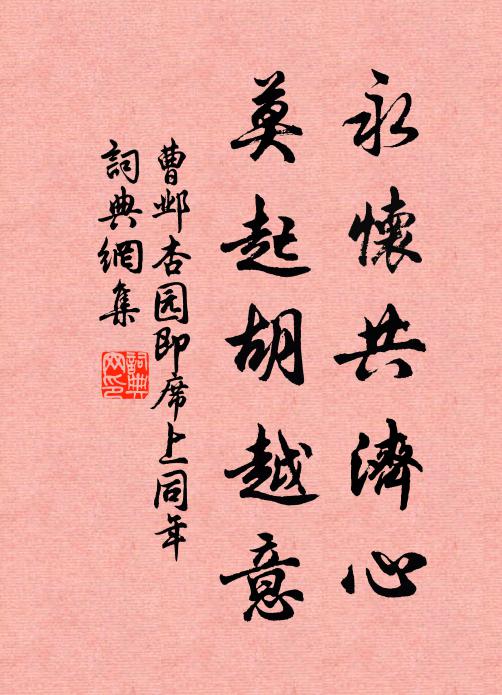 永懷共濟心
莫起胡越意
曹邺杏园即席上同年
詞典網集
詞典網印